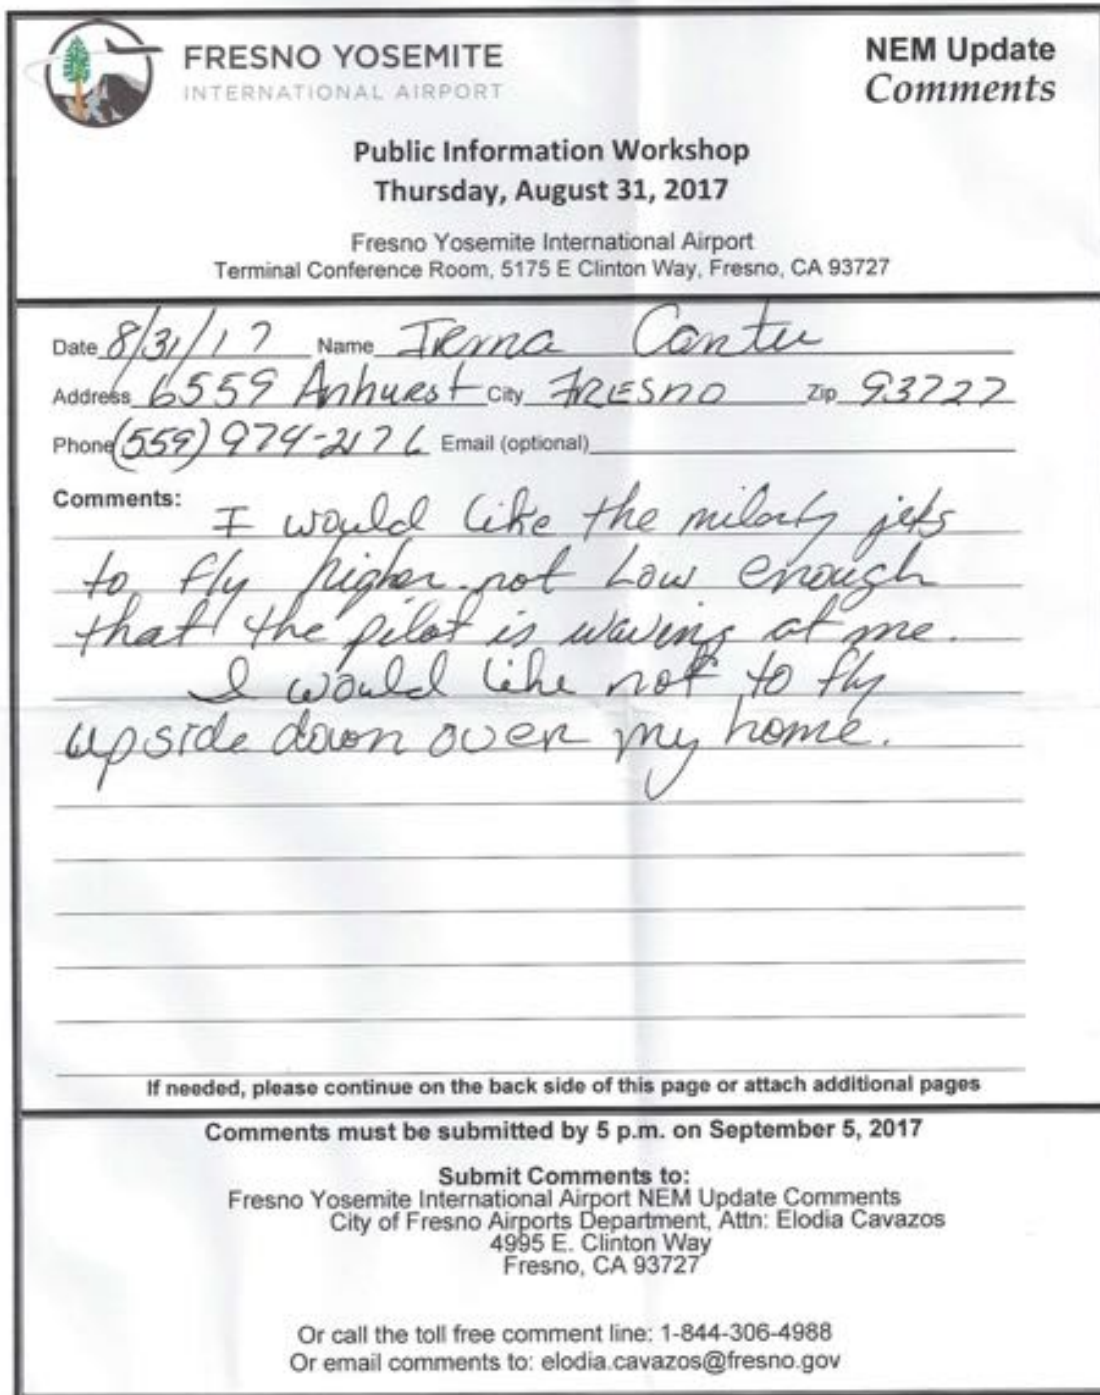 FRESNO YOSEMITE
INTERNATIONAL AIRPORT
NEM Update
Comments
Public Information Workshop
Thursday, August 31, 2017
Fresno Yosemite International Airport
Terminal Conference Room, 5175 E Clinton Way, Fresno, CA 93727
Date 8/31/17 Name Irma Cantu
Address 6559 City FRESNO Zip 93727
Phone (559) 974-2176 Email (optional)
Comments:
I would like the milarty jets
to fly higher not Low enough
that the pilot is waving at me.
I would like not to fly
upside down over my home.
If needed, please continue on the back side of this page or attach additional pages
Comments must be submitted by 5 p.m. on September 5, 2017
Submit Comments to:
Fresno Yosemite International Airport NEM Update Comments
City of Fresno Airports Department, Attn: Elodia Cavazos
4995 E. Clinton Way
Fresno, CA 93727
Or call the toll free comment line: 1-844-306-4988
Or email comments to: elodia.cavazos@fresno.gov